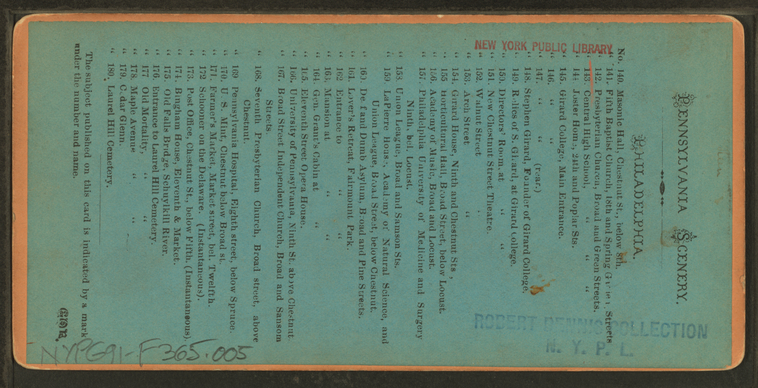 PENNSYLVANIA SCENERY.
PHILADELPHIA.
No. 140. Masonic Hall, Chestnut St., below 8th.
" 141. Fifth Baptist Church, 18th and Spring Garden Streets
" 142. Presbyterian Church, Broad and Green Streets,
" 143. Central High School, " "
" 144. Foster Home, 24th and Poplar Sts.
" 145. Girard College, Main Entrance.
" 146. " "
" 147. " " (rear.)
" 148. Stephen Girard, Founder of Girard College.
" 149. Relics of S. Girard, at Girard College.
" 150. Directors' Room, at "
" 151. New Chestnut Street Theatre.
" 152. Walnut Street "
" 153. Arch Street "
" 154. Girard House, Ninth and Chestnut Sts.,
" 155. Horticultural Hall, Broad Street, below Locust.
" 156. Academy of Music, Broad and Locust.
" 157. Philadelphia University of Medicine and Surgery
Ninth, bel. Locust.
" 158. Union League, Broad and Sansom Sts.
" 159. LaPierre House, Academy of Natural Science, and
Union League, Broad Street, below Chestnut.
" 160. Deaf and Dumb Asylum, Broad and Pine Streets.
" 161. Lover's Retreat, Fairmount Park.
" 162. Entrance to "
" 163. Mansion at " "
" 164. Gen. Grant's Cabin at "
" 165. Eleventh Street Opera House.
" 166. University of Pennsylvania, Ninth St. above Chestnut
" 167. Broad Street Independent Church, Broad and Sansom
Streets.
" 168. Seventh Presbyterian Church, Broad street, above
Chestnut.
" 169. Pennsylvania Hospital, Eighth street, below Spruce.
" 170. U. S. Mint, Chestnut below Broad st.
" 171. Farmer's Market, Market street, bel. Twelfth.
" 172. Schooner on the Delaware. (Instantaneous).
" 173. Post Office, Chestnut St., below Fifth. (Instantaneous).
" 174. Bingham House, Eleventh & Market.
" 175. Old Falls Bridge, Schuylkill River.
" 176. Entrance to Laurel Hill Cemetery.
" 177. Old Mortality. " "
" 178. Maple Avenue " "
" 179. Cedar Glenn. "
" 180. Laurel Hill Cemetery.
The subject published on this card is indicated by a mark
under the number and name.
NEW YORK PUBLIC LIBRARY
ROBERT DENNIS COLLECTION
N. Y. P. L.
NYPG91-F365.005